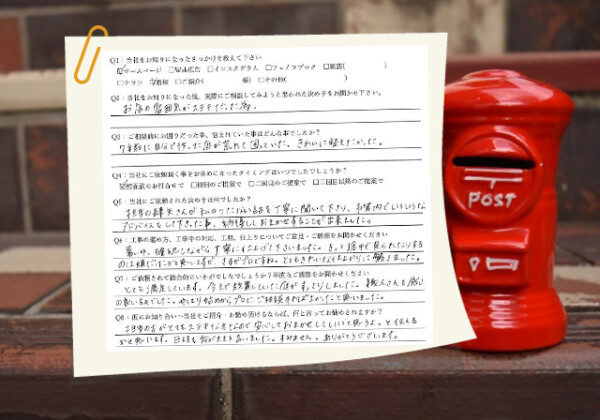 Q1：当社をお知りになったきっかけを教えて下さい
☑ホームページ □Web広告 □インスタグラム □フェイスブック □雑誌( )
□チラシ □看板 □ご紹介( 様) □その他( )
Q2：当社をお知りになった後、実際にご相談してみようと思われた決め手をお聞かせ下さい。
お店の雰囲気がステキだった為。
Q3：ご相談前にお困りだった事、悩まれていた事はどんな事でしたか？
7年前に自分で作った庭が荒れて困っていた。きれいに整えたかった。
Q4：当社にご依頼頂く事をお決めになったタイミングはいつでしたでしょうか？
☑初回の打合せで □初回のご提案で □二回目のご提案で □三回目以降のご提案で
Q5：当社にご依頼された決め手は何でしたか？
担当の さんが私のつたない話を丁寧に聞いて下さり、予算内でいろいろな
アドバイスをして下さった事。納得しておまかせすることが出来ました。
Q6：工事の進め方、工事中の対応、工期、仕上りについてご意見・ご感想をお聞かせください
暑い中、確認しながら丁寧に仕上げて下さいました。きっと途中で見られたりする
のは嫌だったかと思いますが、さすがプロですね。とてもきれいな仕上がりに驚きました。
Q7：ご依頼されて総合的にいかがでしたでしょうか？率直なご感想をお聞かせください
とても満足しています。今まで放置していた庭がすっきりしました。職人さんも感じ
の良い方でした。やはり初めからプロにご相談すればよかったと思いました。
Q8：仮にお知り合いへ当社をご紹介・お勧め頂けるならば、何と言ってお勧めされますか？
担当の方がとてもステキな方なので安心しておまかせしていいと思うよ。と伝える
かと思います。 ありがとうございます。
POST